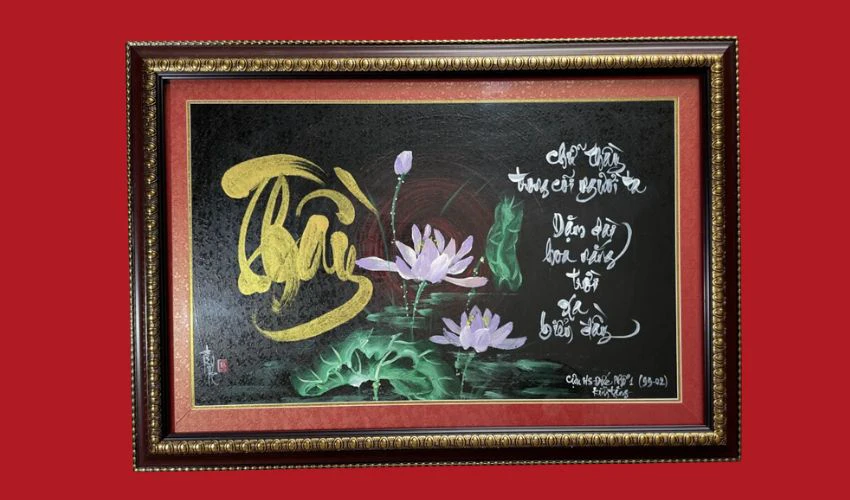 Thầy
Chữ thầy
trong cõi người ta
Dặm dài
hoa nắng
trời
xa
biển đầy
Cựu HS Đức Phổ 1 (99-02)
Kính tặng